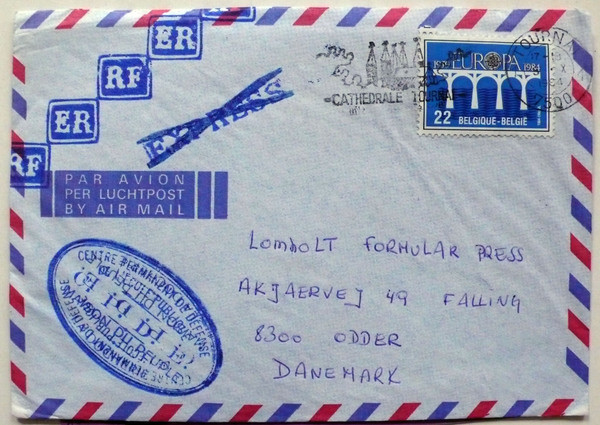 ER
RF
ER
RF
EXPRESS
CATHEDRALE TOURNAI
1979 EUROPA 1984
22 BELGIQUE-BELGIË
TOURNAI
PAR AVION
PER LUCHTPOST
BY AIR MAIL
CENTRE PERMANENT DE DEFENSE
LOMHOLT FORMULAR PRESS
AKJAERVEJ 49 FALLING
8300 ODDER
DANEMARK